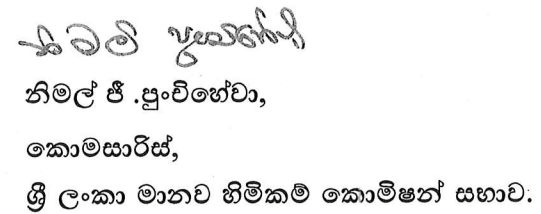 නිමල් ජී .පුංචිහේවා,
කොමසාරිස්,
ශ්‍රී ලංකා මානව හිමිකම් කොමිෂන් සභාව.